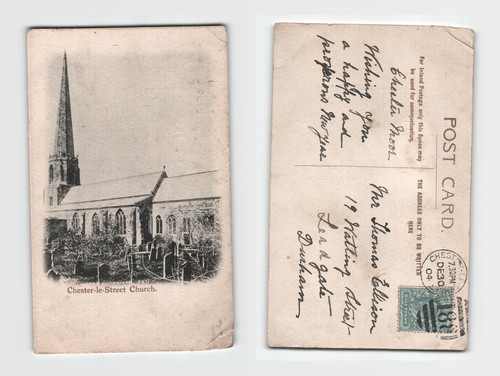 Chester-le-Street Church.
POST CARD.
For Inland Postage only this Space may
be used for communication.
THE ADDRESS ONLY TO BE WRITTEN
HERE
Chester Moor
Wishing you
a happy and
prosperous New Year
Mr Thomas Ellison
19 Watling Street
Leadgate
Durham
CHEST
7.30PM
DE 30
04